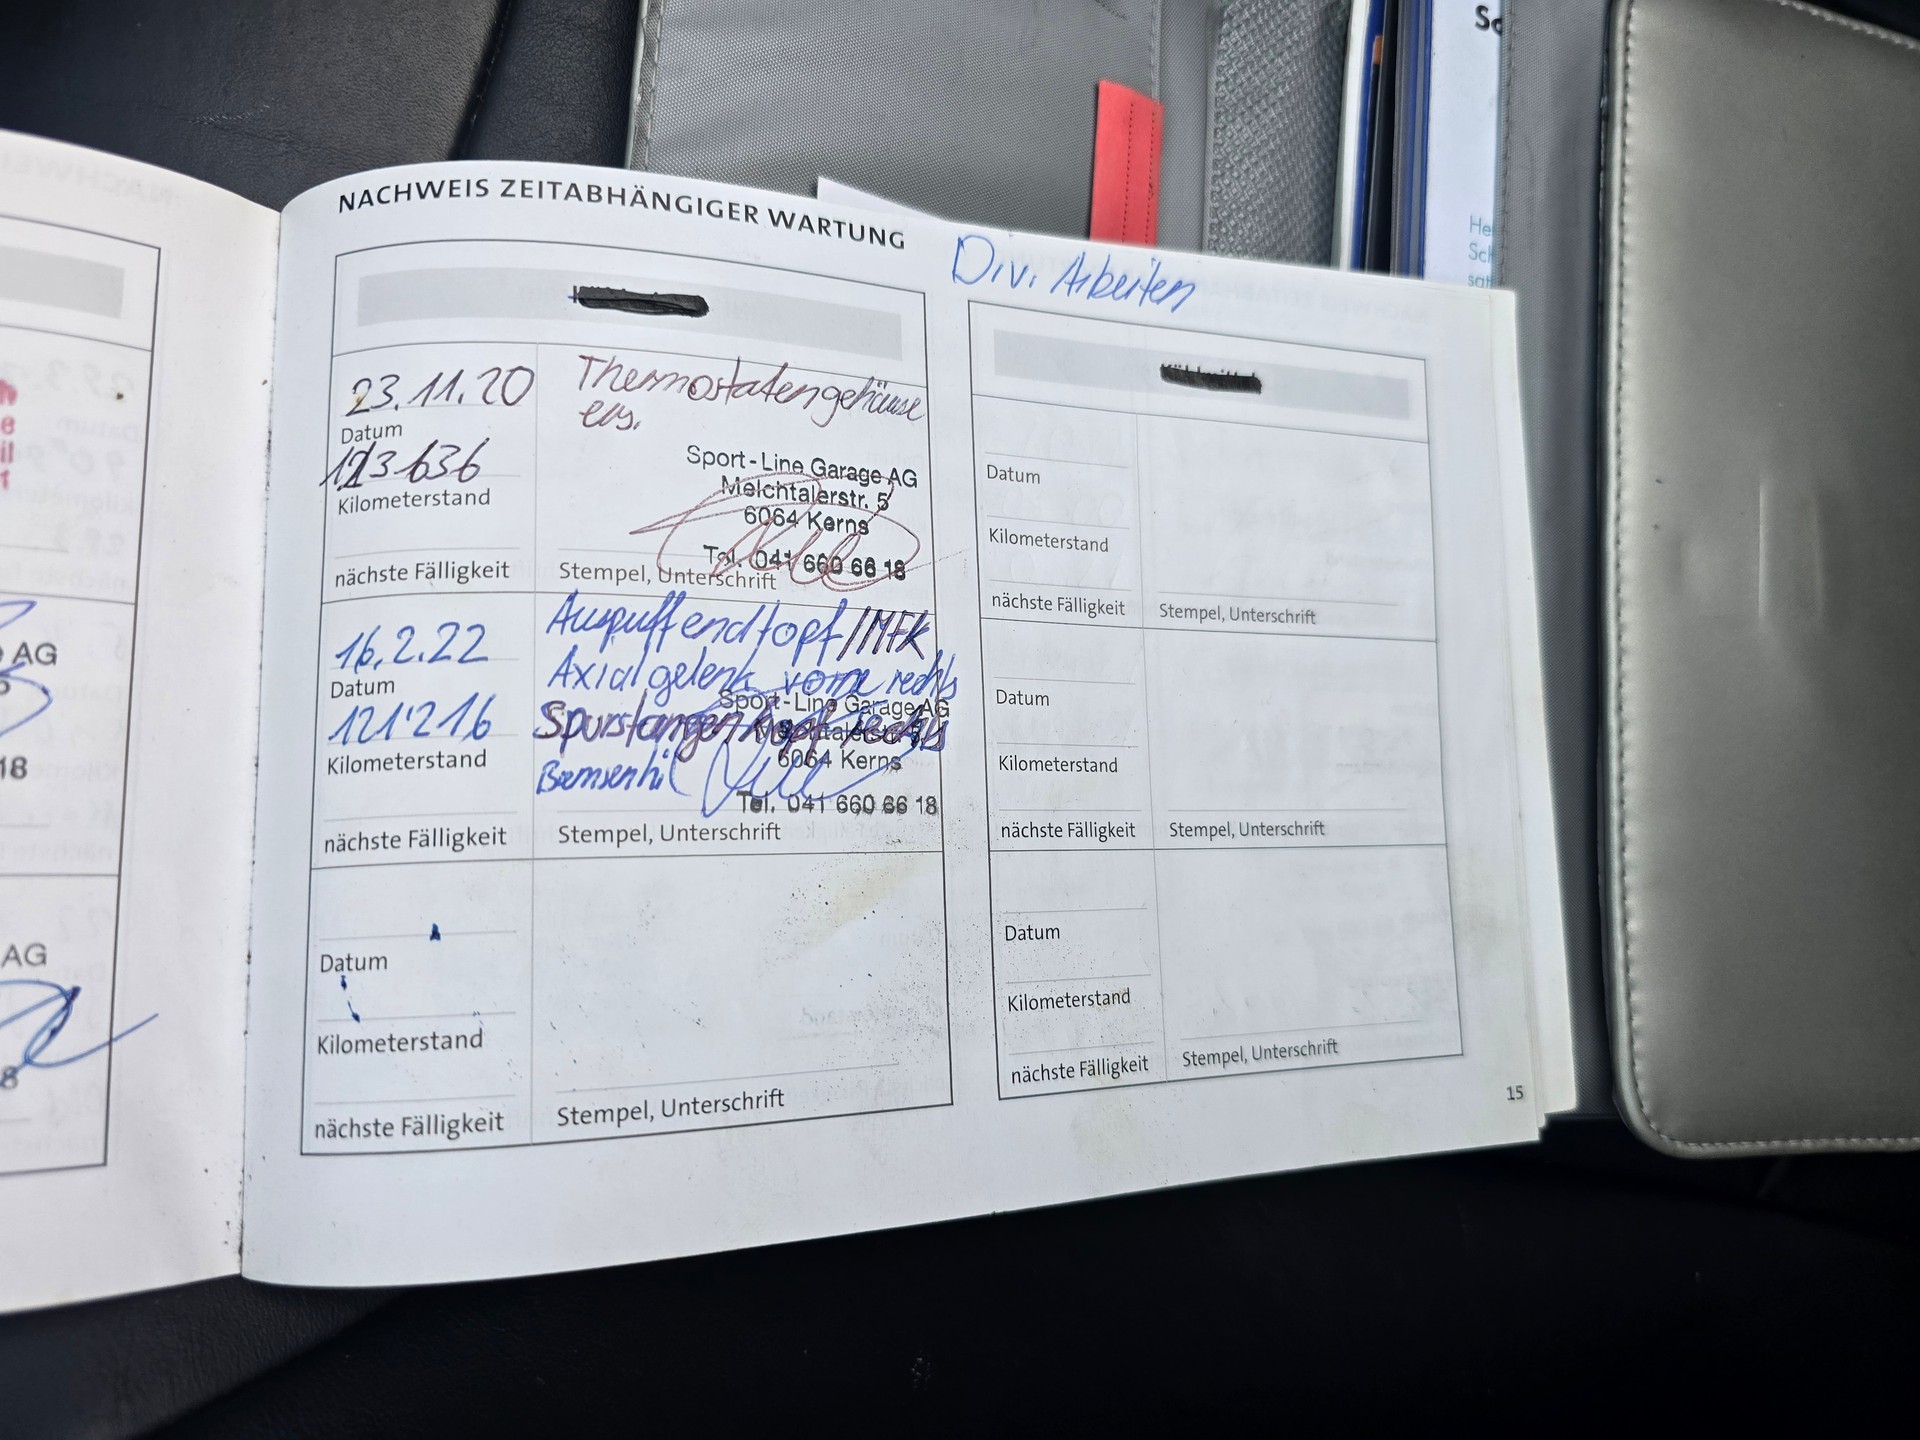 NACHWEIS ZEITABHÄNGIGER WARTUNG
Div. Arbeiten
23.11.20
Datum
Kilometerstand
nächste Fälligkeit
Thermostatengehäuse
ers.
Sport-Line Garage AG
Melchtalerstr. 5
6064 Kerns
Tel. 041 660 66 18
Stempel, Unterschrift
16.2.22
Datum
121'216
Kilometerstand
nächste Fälligkeit
Auspuffendtopf/MFK
Axialgelenk vorne rechts
Spurstangenkopf rechts
Sport-Line Garage AG
6064 Kerns
Tel. 041 660 66 18
Stempel, Unterschrift
Datum
Kilometerstand
nächste Fälligkeit
Stempel, Unterschrift
Datum
Kilometerstand
nächste Fälligkeit
Stempel, Unterschrift
Datum
Kilometerstand
nächste Fälligkeit
Stempel, Unterschrift
Datum
Kilometerstand
nächste Fälligkeit
Stempel, Unterschrift
15
AG
18
AG
8